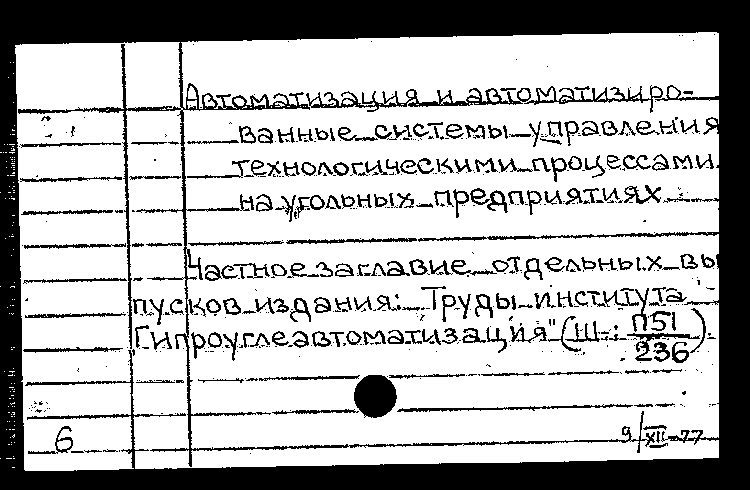 Автоматизация и автоматизиро-
ванные системы управления
технологическими процессами
на угольных предприятиях
Частное заглавие отдельных вы
пусков издания: Труды института
Гипроуглеавтоматизация" (Ш-: П51/236)
6
9/XII-77